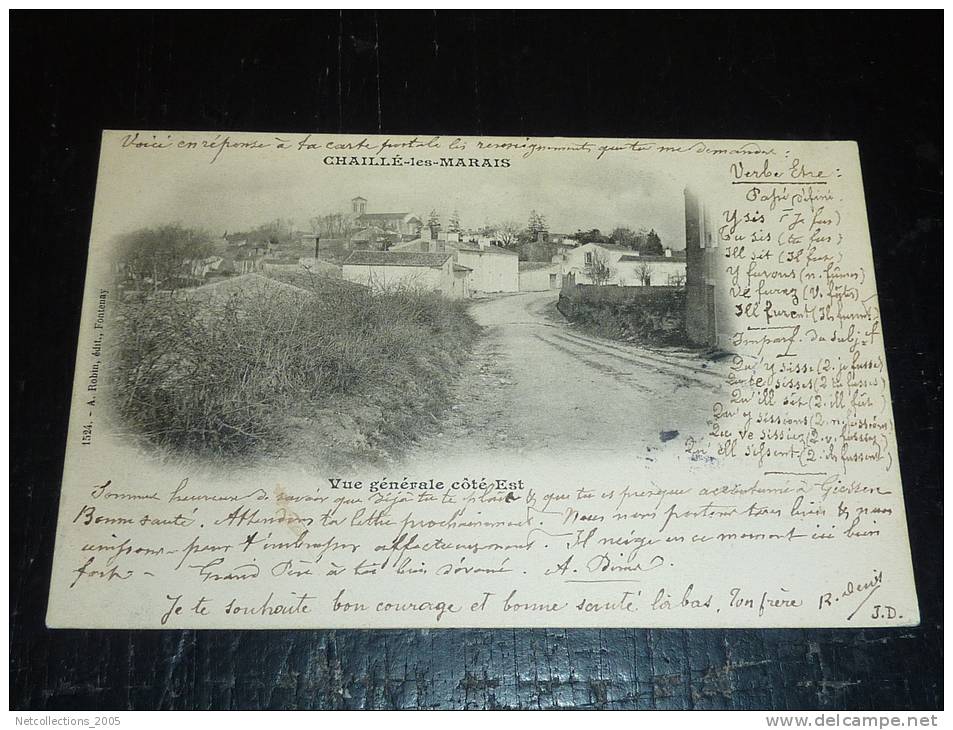 Voici en réponse à ta carte postale les renseignements que tu me demandes :
CHAILLÉ-les-MARAIS
Verbe Etre :
Passé défini
Y sis (Je fus)
Tu sis (tu fus)
Ill sit (Il fut)
Y furons (n. fûmes)
Ve furez (V. fûtes)
Ill furent (Ils furent)
Imparf. du subj.f
Qu'y sisse (2. je fusse)
Que te sisses (2 tu fusses)
Qu'ill sit (2. ill fût)
Qu'y sissions (2. n. fussions)
Qu ve sissiez (2. v. fussiez)
Qu'ill sissent (2. ils fussent)
1524. - A. Robin, édit., Fontenay
Vue générale côté Est
Sommes heureux de savoir que déjà tu te plais & que tu es presque accoutumé à Giessen
Bonne santé. Attendons ta lettre prochainement. Nous nous portons tous bien & nous
unissons pour t'embrasser affectueusement. Il neige en ce moment ici bien
fort - Grand Père à toi bien dévoué. A.
Je te souhaite bon courage et bonne santé là bas. Ton frère R. Denis
J.D.
Netcollections_2005